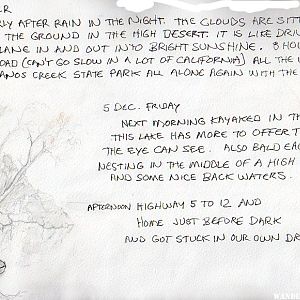 LR
RLY AFTER RAIN IN THE NIGHT. THE CLOUDS ARE SITT
THE GROUND IN THE HIGH DESERT. IT IS LIKE DRIV
LANE IN AND OUT INTO BRIGHT SUNSHINE. 8 HO
OAD (CAN'T GO SLOW IN A LOT OF CALIFORNIA) ALL THE
ANOS CREEK STATE PARK ALL ALONE AGAIN WITH THE
5 DEC. FRIDAY
NEXT MORNING KAYAKED IN TH
THIS LAKE HAS MORE TO OFFER T
THE EYE CAN SEE. ALSO BALD EAG
NESTING IN THE MIDDLE OF A HIGH
AND SOME NICE BACK WATERS.
AFTERNOON HIGHWAY 5 TO 12 AND
HOME JUST BEFORE DARK
AND GOT STUCK IN OUR OWN DR